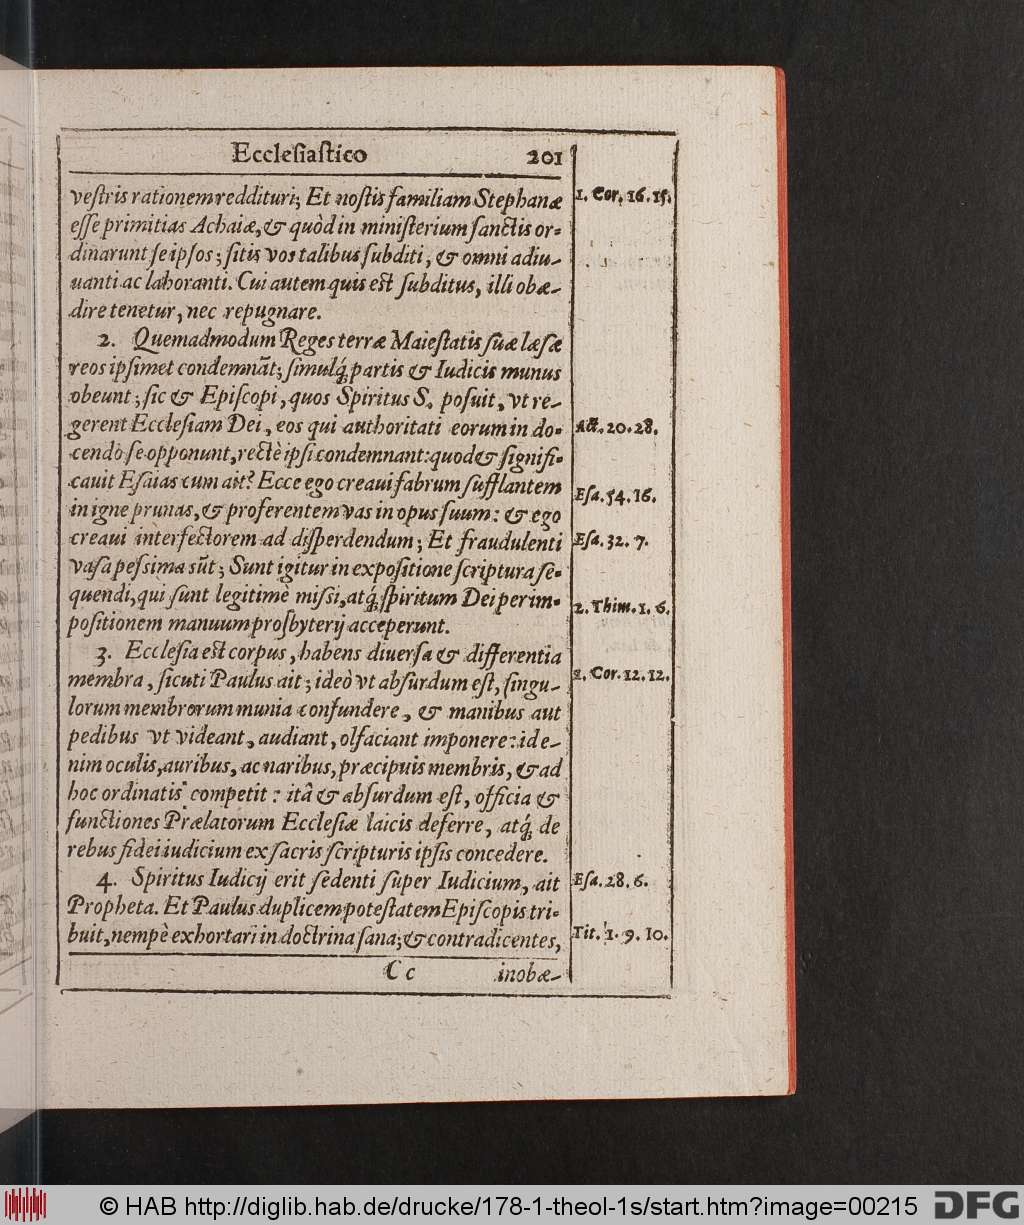 Ecclesiastico 201
vestris rationem reddituri; Et nostis familiam Stephanæ
esse primitias Achaiæ, & quòd in ministerium sanctis or-
dinarunt seipsos; sitis vos talibus subditi, & omni adiu-
uanti ac laboranti. Cui autem quis est subditus, illi obæ-
dire tenetur, nec repugnare.
2. Quemadmodum Reges terræ Maiestatis suæ læsæ
reos ipsimet condemnāt; simulq́; partis & Iudicis munus
obeunt; sic & Episcopi, quos Spiritus S. posuit, vt re-
gerent Ecclesiam Dei, eos qui authoritati eorum in do-
cendo se opponunt, rectè ipsi condemnant: quod & signifi-
cauit Esaias cum ait? Ecce ego creaui fabrum sufflantem
in igne prunas, & proferentem vas in opus suum: & ego
creaui interfectorem ad disperdendum; Et fraudulenti
vasa pessima sūt; Sunt igitur in expositione scriptura se-
quendi, qui sunt legitimè missi, atq́; spiritum Dei per im-
positionem manuum prosbyterij acceperunt.
3. Ecclesia est corpus, habens diuersa & differentia
membra, sicuti Paulus ait; ideò vt absurdum est, singu-
lorum membrorum munia confundere, & manibus aut
pedibus vt videant, audiant, olfaciant imponere: id e-
nim oculis, auribus, ac naribus, præcipuis membris, & ad
hoc ordinatis competit: itâ & absurdum est, officia &
functiones Prælatorum Ecclesiæ laicis deferre, atq́; de
rebus fidei iudicium ex sacris scripturis ipsis concedere.
4. Spiritus Iudicij erit sedenti super Iudicium, ait
Propheta. Et Paulus duplicem potestatem Episcopis tri-
buit, nempè exhortari in doctrina sana; & contradicentes,
C c inobæ-
1. Cor. 16. 15.
Act. 20. 28.
Esa. 54. 16.
Esa. 32. 7.
2. Thim. 1. 6.
1. Cor. 12. 12.
Esa. 28. 6.
Tit. 1. 9. 10.
© HAB http://diglib.hab.de/drucke/178-1-theol-1s/start.htm?image=00215
DFG